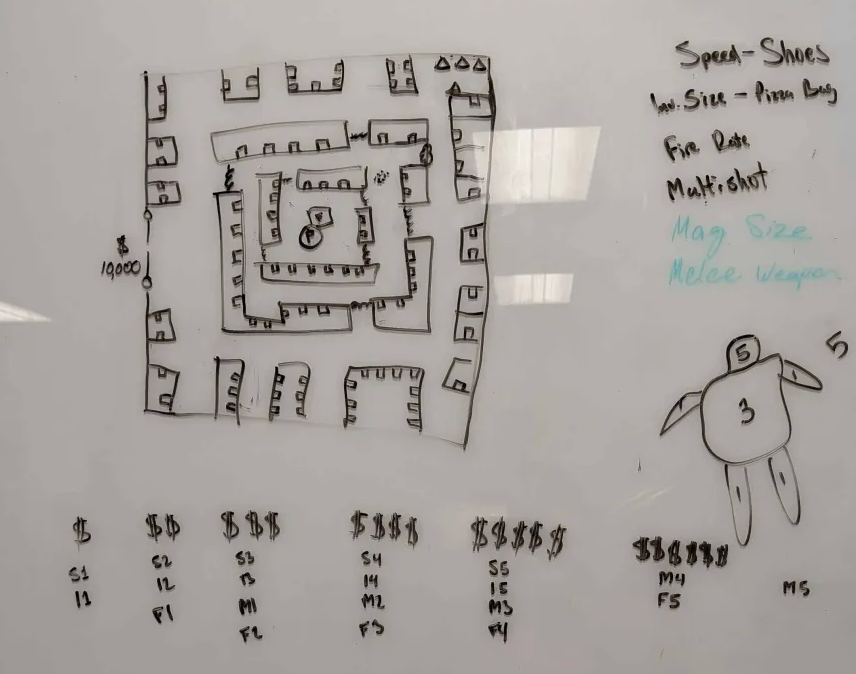 Speed-Shoes
Inv. Size - Pizza Bag
Fire Rate
Multishot
Mag Size
Melee Weapon
$
10,000
5
5
3
1
1
1
$
S1
I1
$$
S2
I2
F1
$$$
S3
I3
M1
F2
$$$$
S4
I4
M2
F3
$$$$$
S5
I5
M3
F4
$$$$$$
M4
F5
M5